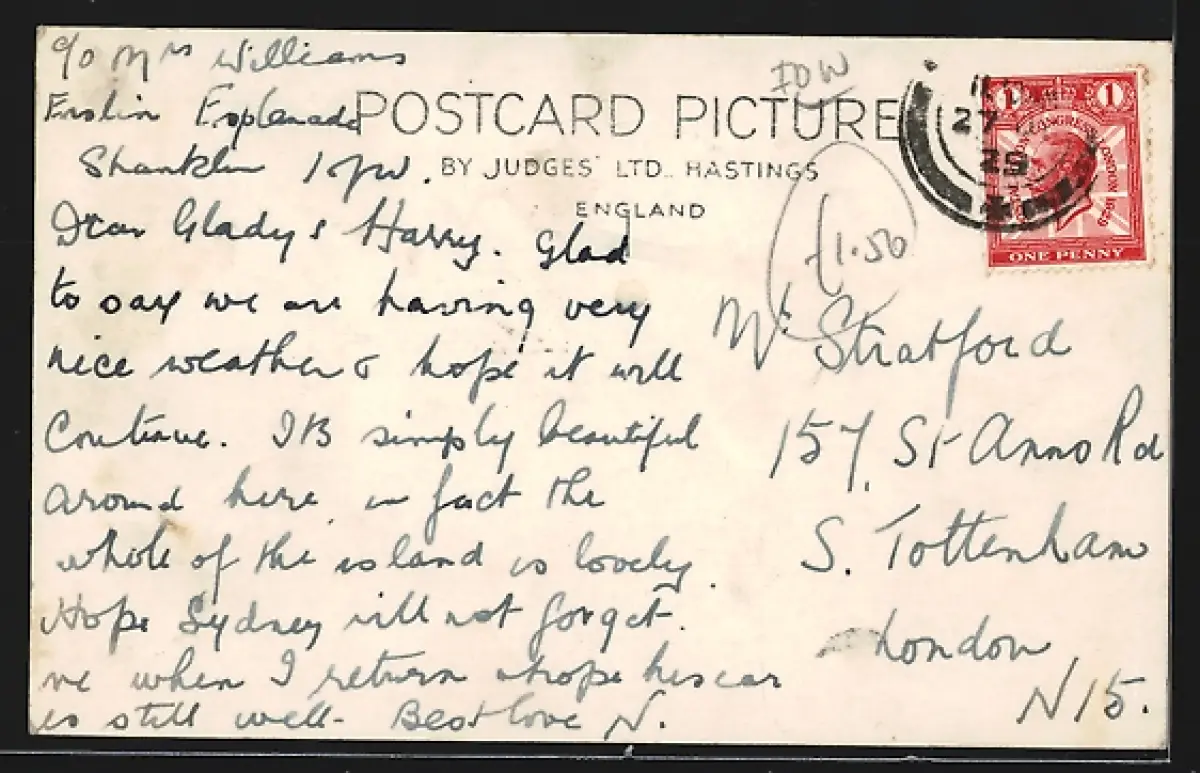 c/o Mrs Williams
Esplanade
Shanklin IOW.
Dear Gladys & Harry. Glad
to say we are having very
nice weather & hope it will
continue. It is simply beautiful
around here, in fact the
whole of the island is lovely.
Hope Sydney will not forget
me when I return & hope his car
is still well - Best love N.
POSTCARD PICTURE
BY JUDGES' LTD. HASTINGS
ENGLAND
IOW
£1.50
27
29
1 1
POSTAL UNION CONGRESS LONDON 1929
ONE PENNY
Stratford
157, St Anns Rd
S. Tottenham
London
N15.